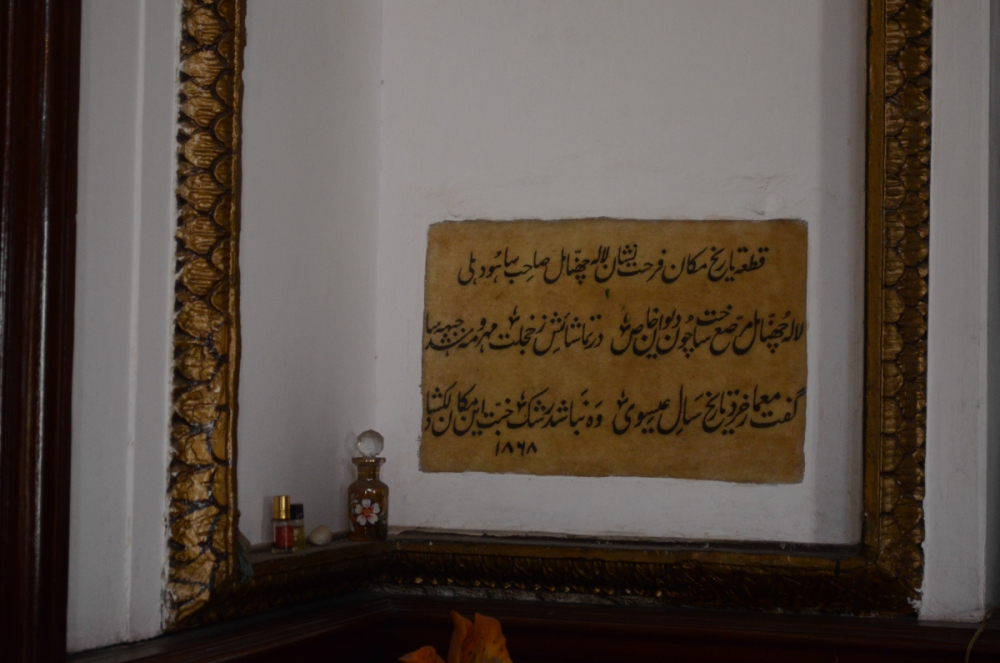 قطعہ تاریخ مکان فرحت نشان لالہ چھنامل صاحب ساہو دہلی
لالہ چھنامل مرصع ساخت چون دیوان خاص در تماشائش ز خجلت مهر و مه شد جبهه سا
گفت معمار خرد تاریخ سال عیسوی وه نباشد رشک جنت این مکان دلکشا
۱۸۶۸